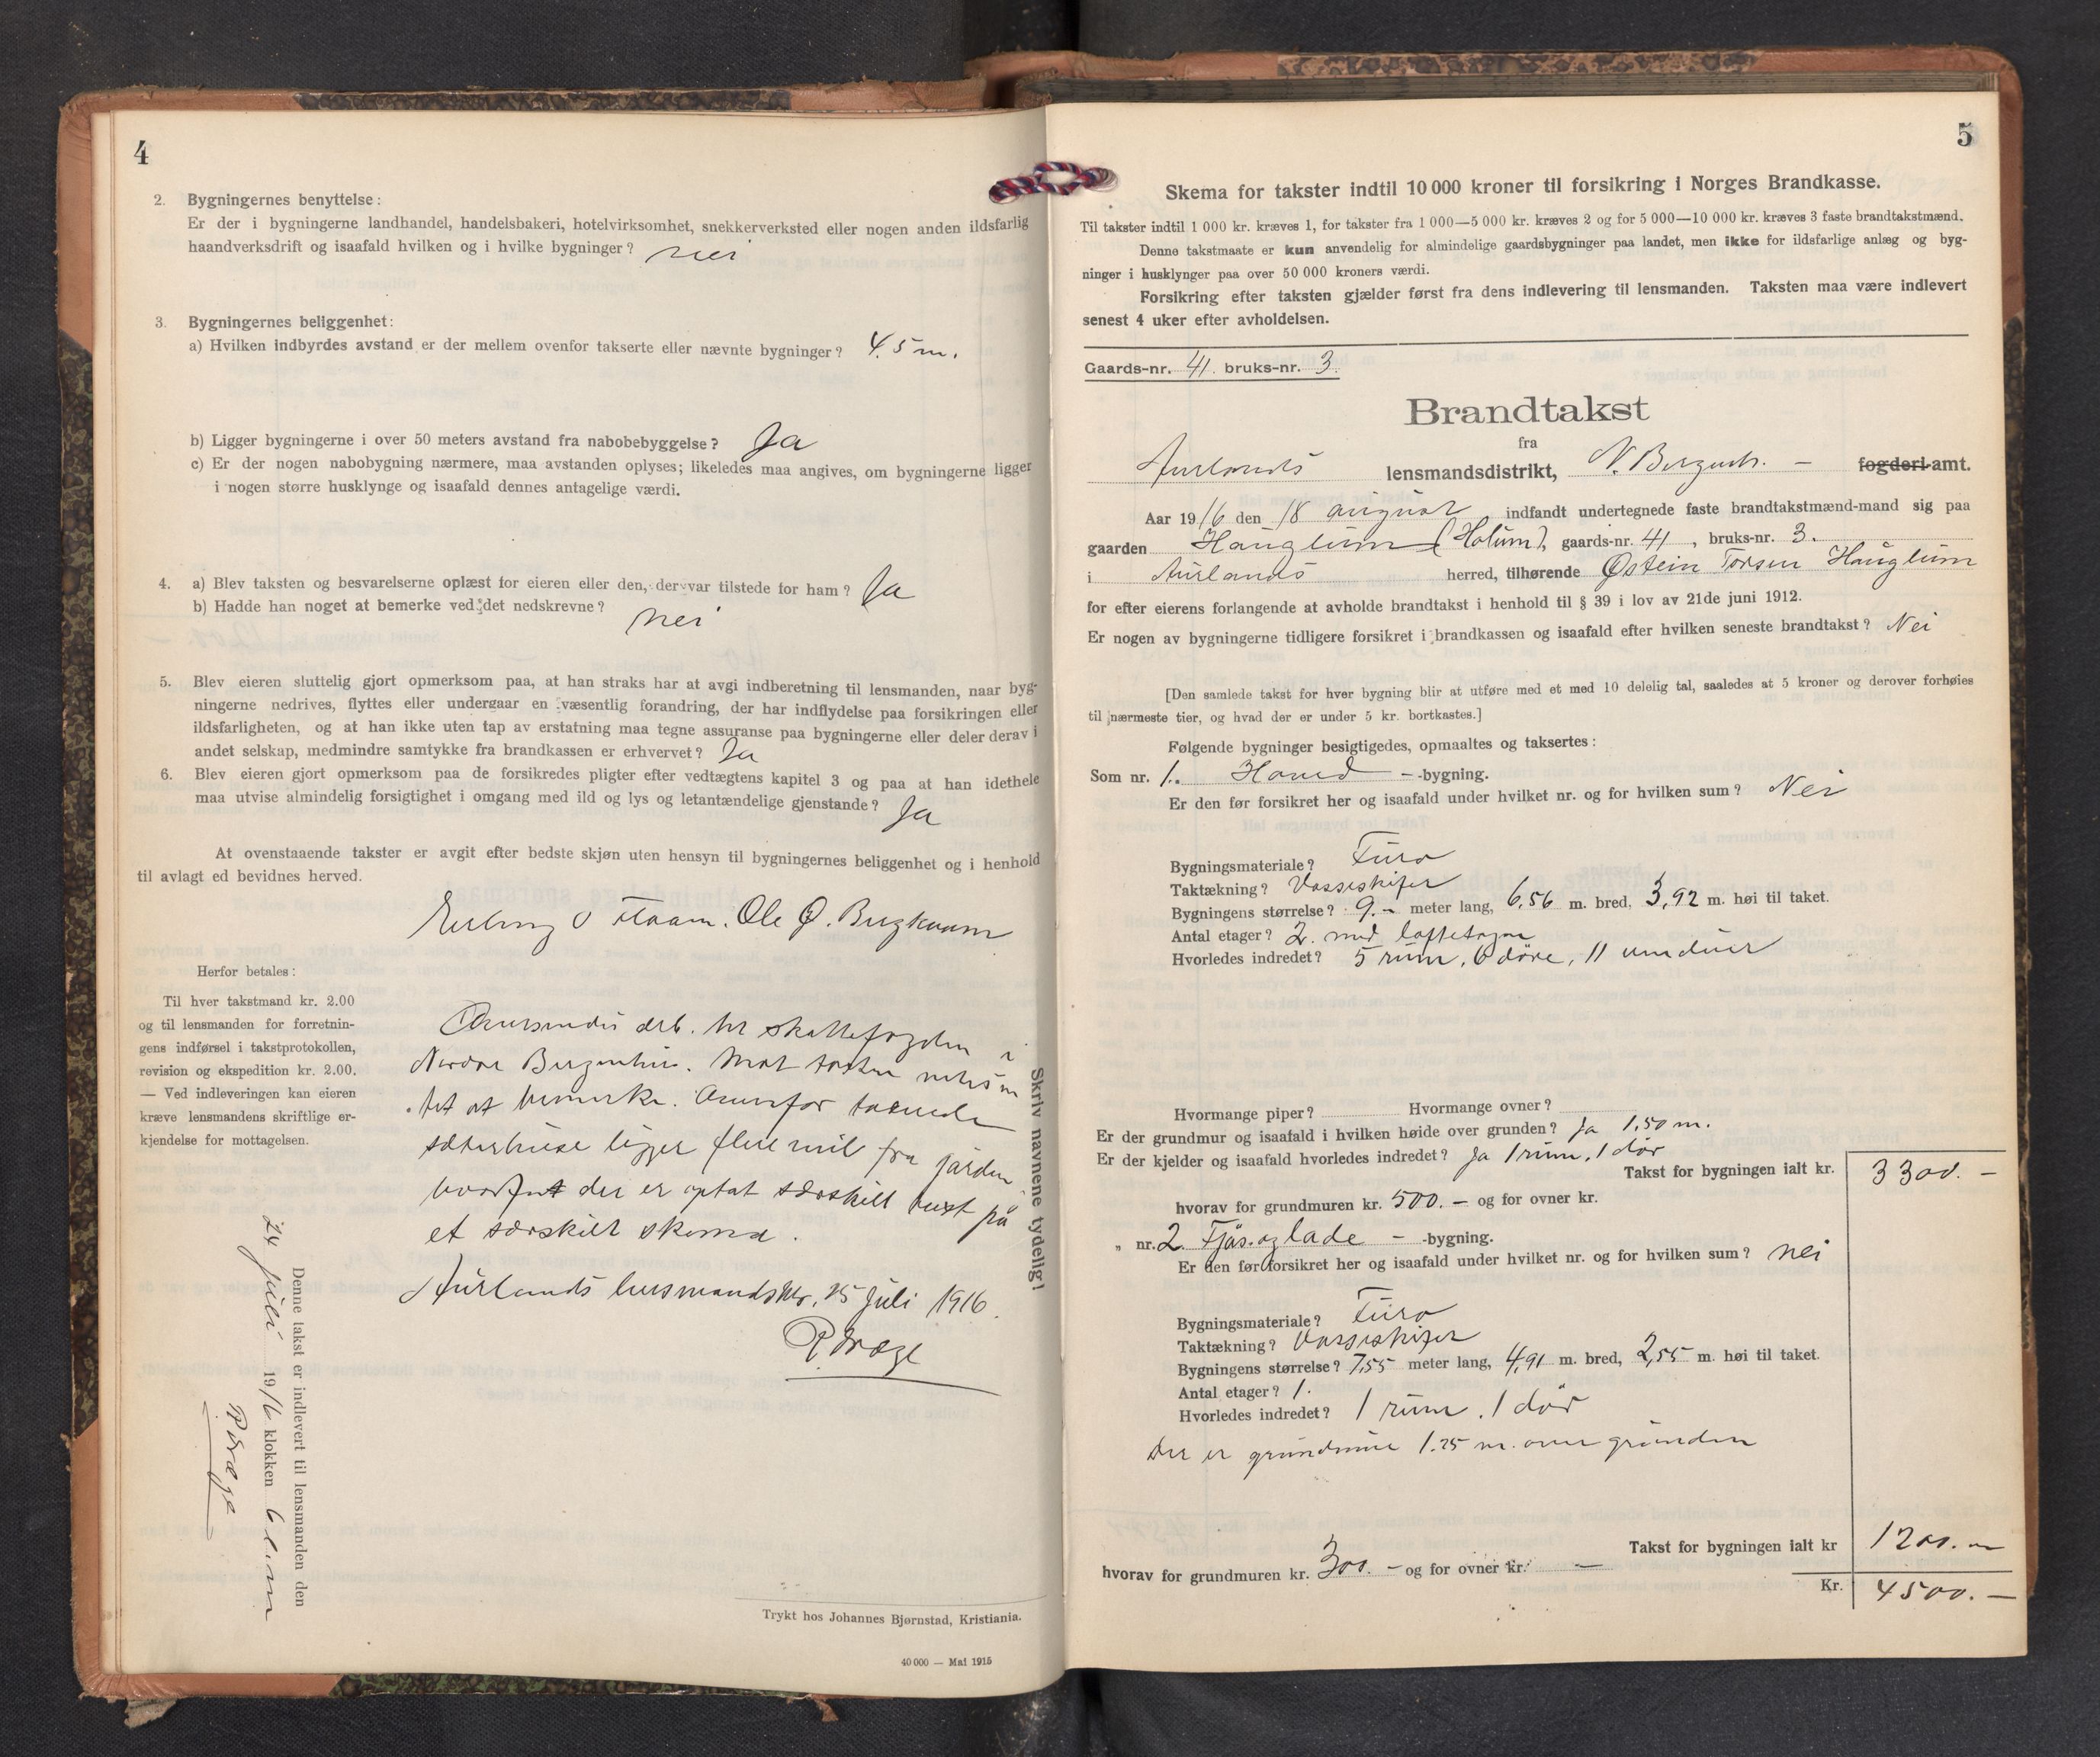 4
2. Bygningernes benyttelse:
Er der i bygningerne landhandel, handelsbakeri, hotelvirksomhet, snekkerverksted eller nogen anden ildsfarlig
haandverksdrift og isaafald hvilken og i hvilke bygninger? nei
3. Bygningernes beliggenhet:
a) Hvilken indbyrdes avstand er der mellem ovenfor takserte eller nævnte bygninger? 4.5 m.
b) Ligger bygningerne i over 50 meters avstand fra nabobebyggelse? Ja
c) Er der nogen nabobygning nærmere, maa avstanden oplyses; likeledes maa angives, om bygningerne ligger
i nogen større husklynge og isaafald dennes antagelige værdi.
4. a) Blev taksten og besvarelserne oplæst for eieren eller den, der var tilstede for ham? Ja
b) Hadde han noget at bemerke ved det nedskrevne? nei
5. Blev eieren sluttelig gjort opmerksom paa, at han straks har at avgi indberetning til lensmanden, naar byg-
ningerne nedrives, flyttes eller undergaar en væsentlig forandring, der har indflydelse paa forsikringen eller
ildsfarligheten, og at han ikke uten tap av erstatning maa tegne assuranse paa bygningerne eller deler derav i
andet selskap, medmindre samtykke fra brandkassen er erhvervet? Ja
6. Blev eieren gjort opmerksom paa de forsikredes pligter efter vedtægtens kapitel 3 og paa at han idethele
maa utvise almindelig forsigtighet i omgang med ild og lys og letantændelige gjenstande? Ja
At ovenstaaende takster er avgit efter bedste skjøn uten hensyn til bygningernes beliggenhet og i henhold
til avlagt ed bevidnes herved.
Erling O Flaam. Ole O. Bergkvam
Herfor betales:
Til hver takstmand kr. 2.00
og til lensmanden for forretnin-
gens indførsel i takstprotokollen,
revision og ekspedition kr. 2.00.
— Ved indleveringen kan eieren
kræve lensmandens skriftlige er-
kjendelse for mottagelsen.
Oversendes til skattefogden i
Nordre Bergenhus. Mot taksten intet
at bemerke. Ovenfor
sæterhuse ligger flere mil fra gården
hvorfor der er optat særskilt takst på
et særskilt skema.
Aurlands lensmandsktr. 25 juli 1916.
P Dræge
Skriv navnene tydelig!
Denne takst er indlevert til lensmanden den
24 juli 1916 klokken 6 e.m
P Dræge
Trykt hos Johannes Bjørnstad, Kristiania.
40 000 — Mai 1915
5
Skema for takster indtil 10 000 kroner til forsikring i Norges Brandkasse.
Til takster indtil 1 000 kr. kræves 1, for takster fra 1 000—5 000 kr. kræves 2 og for 5 000—10 000 kr. kræves 3 faste brandtakstmænd.
Denne takstmaate er kun anvendelig for almindelige gaardsbygninger paa landet, men ikke for ildsfarlige anlæg og byg-
ninger i husklynger paa over 50 000 kroners værdi.
Forsikring efter taksten gjælder først fra dens indlevering til lensmanden. Taksten maa være indlevert
senest 4 uker efter avholdelsen.
Gaards-nr. 41. bruks-nr. 3.
Brandtakst
fra
Aurlands lensmandsdistrikt, N. Bergenh. – fogderi-amt.
Aar 1916 den 18 august indfandt undertegnede faste brandtakstmænd-mand sig paa
gaarden Hauglum (Holum), gaards-nr. 41, bruks-nr. 3.
i Aurlands herred, tilhørende Østein Torsen Hauglum
for efter eierens forlangende at avholde brandtakst i henhold til § 39 i lov av 21de juni 1912.
Er nogen av bygningerne tidligere forsikret i brandkassen og isaafald efter hvilken seneste brandtakst? Nei
[Den samlede takst for hver bygning blir at utføre med et med 10 delelig tal, saaledes at 5 kroner og derover forhøies
til nærmeste tier, og hvad der er under 5 kr. bortkastes.]
Følgende bygninger besigtigedes, opmaaltes og taksertes:
Som nr. 1. Hoved – -bygning.
Er den før forsikret her og isaafald under hvilket nr. og for hvilken sum? Nei
Bygningsmateriale? Furo
Taktækning? Vosseskifer
Bygningens størrelse? 9.– meter lang, 6,56 m. bred, 3,92 m. høi til taket.
Antal etager? 2. med loftetagen
Hvorledes indredet? 5 rum, 6 døre, 11 vinduer
Hvormange piper? Hvormange ovner?
Er der grundmur og isaafald i hvilken høide over grunden? Ja 1,50 m.
Er der kjelder og isaafald hvorledes indredet? Ja 1 rum, 1 dør
Takst for bygningen ialt kr. 3300.–
hvorav for grundmuren kr. 500.– og for ovner kr.
„ nr. 2. Fjøs og lade – -bygning.
Er den før forsikret her og isaafald under hvilket nr. og for hvilken sum? nei
Bygningsmateriale? Furo
Taktækning? Vosseskifer
Bygningens størrelse? 7,55 meter lang, 4,91 m. bred, 2,55 m. høi til taket.
Antal etager? 1.
Hvorledes indredet? 1 rum, 1 dør
Der er grundmur 1.25 m. over grunden
Takst for bygningen ialt kr 1200.–
hvorav for grundmuren kr. 300.– og for ovner kr. –
Kr. 4500.–